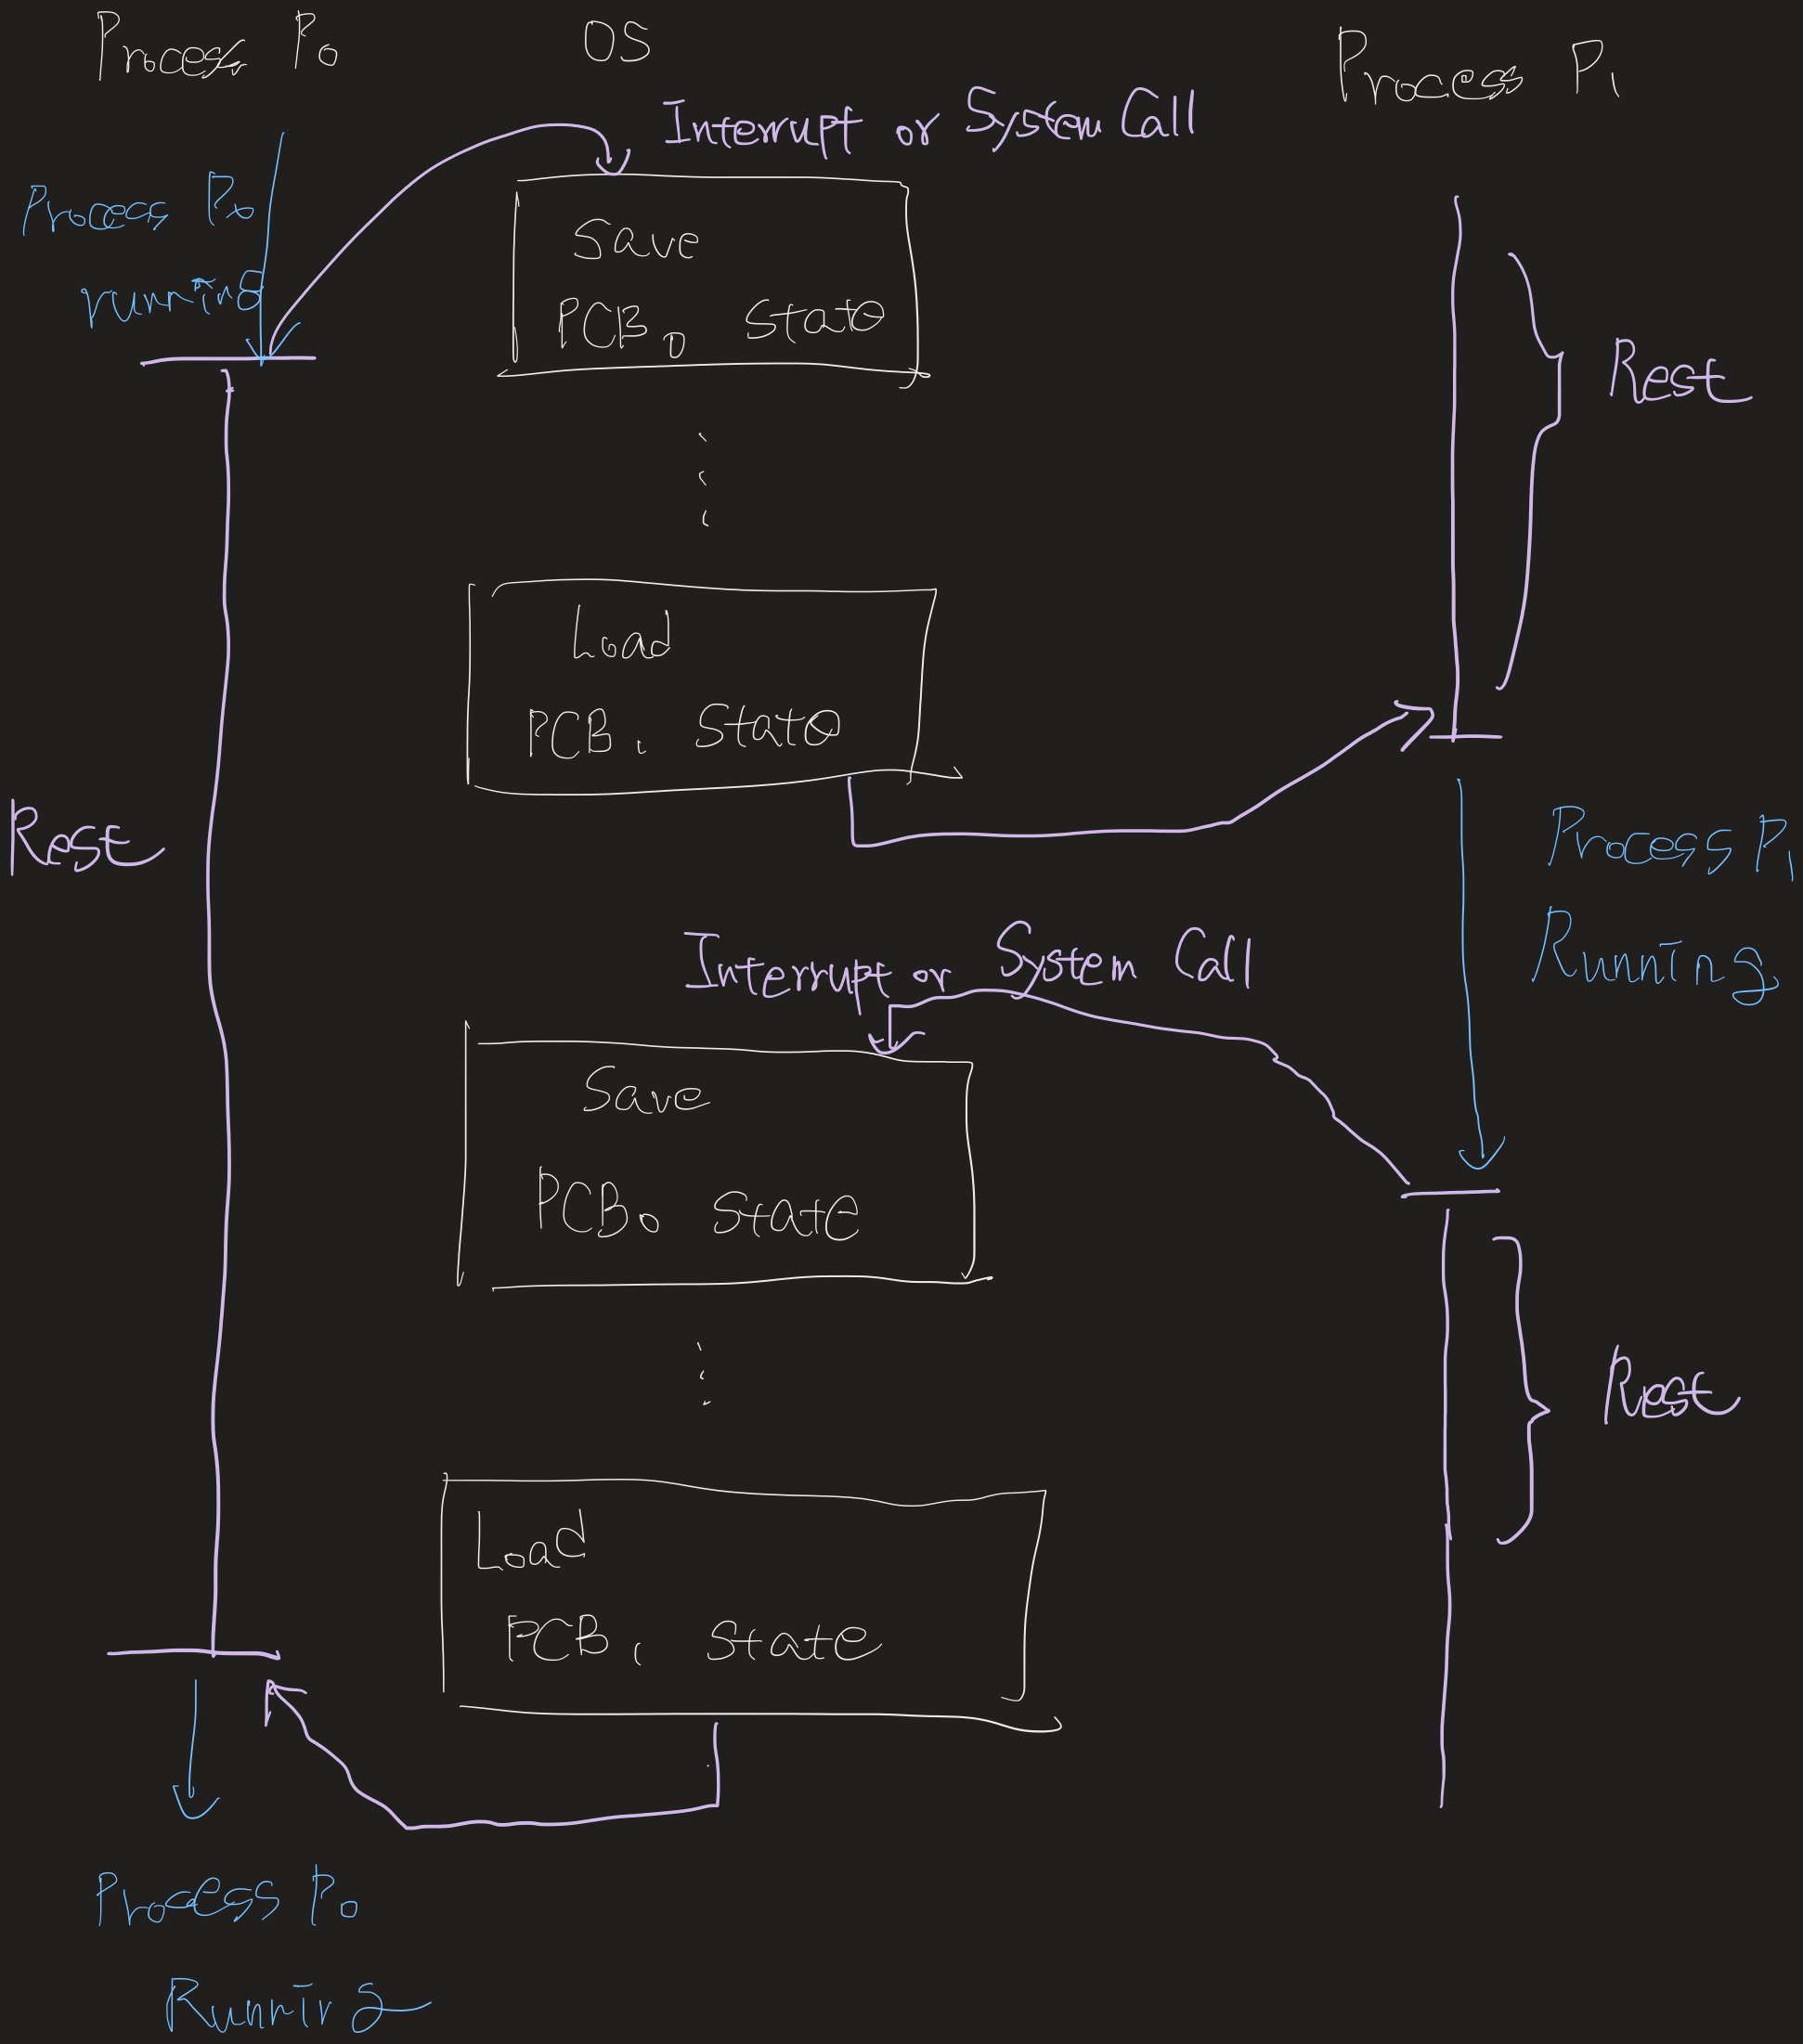 Process P₀
OS
Process P₁
Interrupt or System Call
Process P₀
running
Save
PCB₀ state
Rest
Load
PCB₁ state
Rest
Process P₁
Running
Interrupt or System Call
Save
PCB₀ state
Rest
Load
PCB₁ state
Process P₀
Running